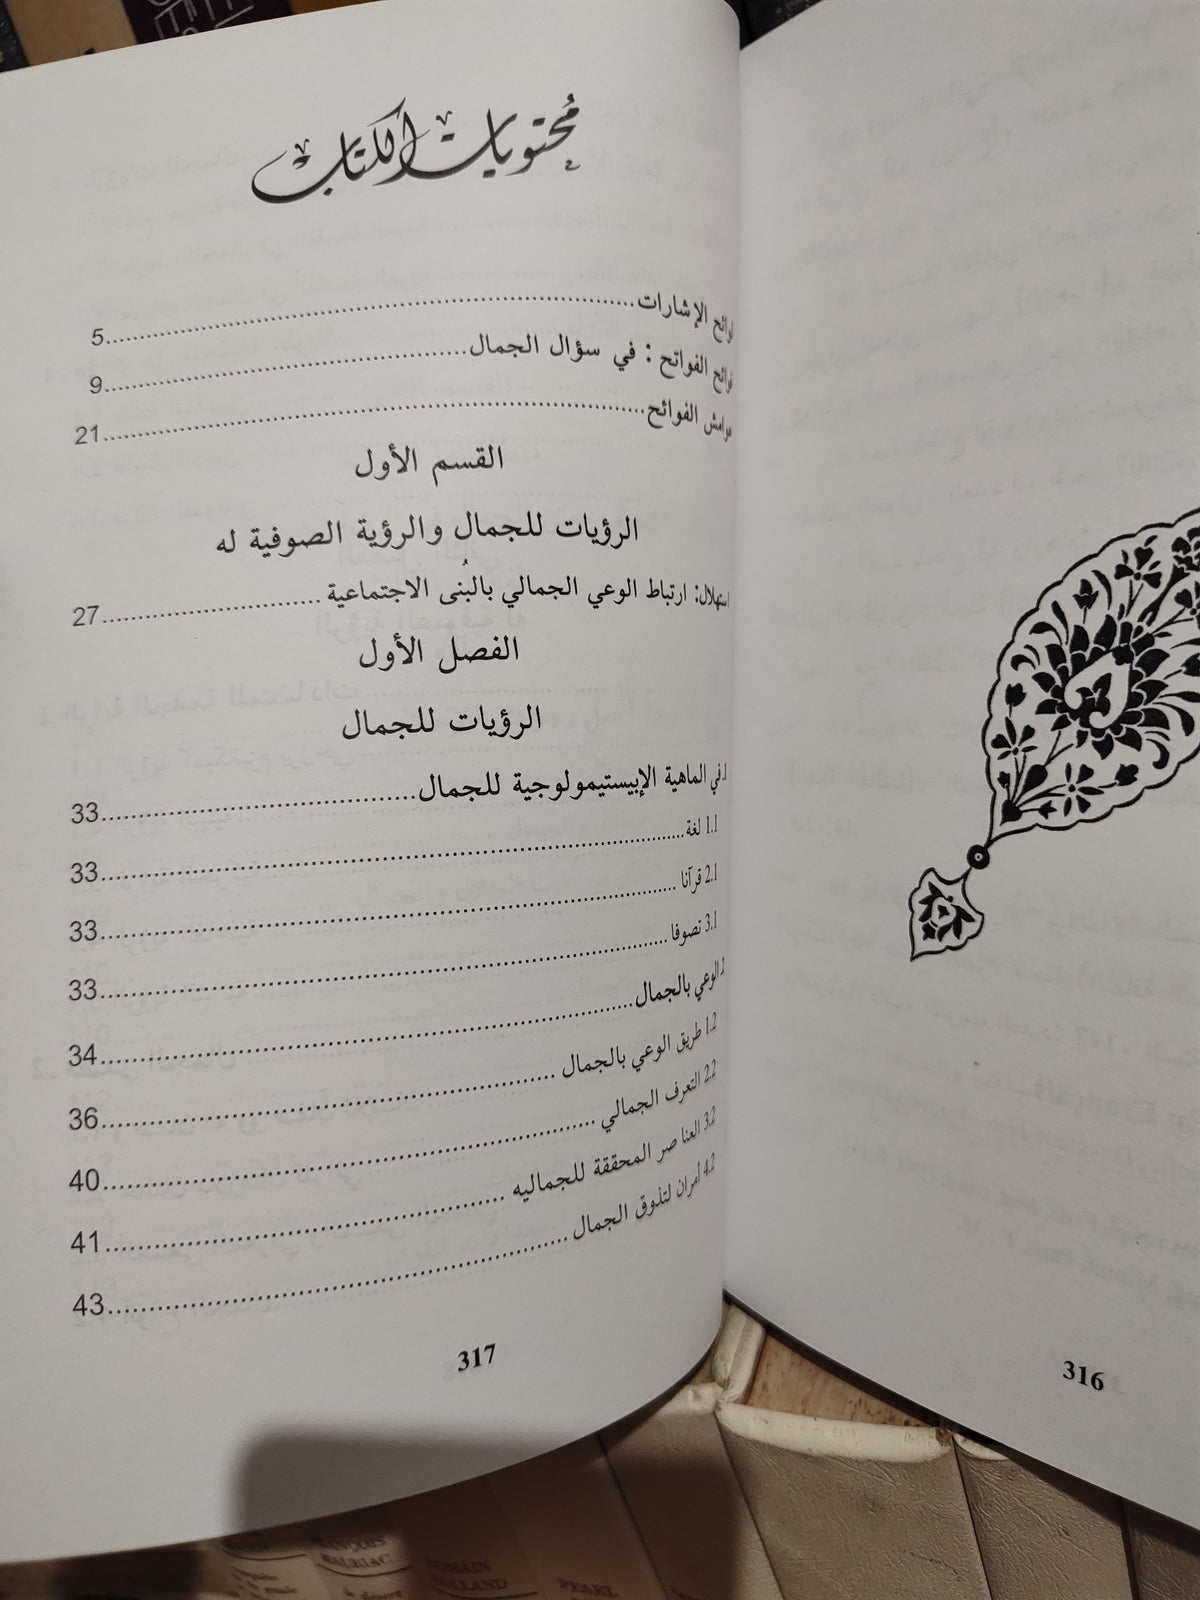 محتويات الكتاب
الإشارات......5
الفواتح : في سؤال الجمال......9
هوامش الفواتح......21
القسم الأول
الرؤيات للجمال والرؤية الصوفية له
استهلال: ارتباط الوعي الجمالي بالبُنى الاجتماعية......27
الفصل الأول
الرؤيات للجمال
1. في الماهية الإبيستيمولوجية للجمال......33
1.1 لغة......33
2.1 قرآنا......33
3.1 تصوفا......33
2. الوعي بالجمال......34
1.2 طريق الوعي بالجمال......36
2.2 التعرف الجمالي......40
3.2 العنا صر المحققة للجماليه......41
4.2 أمران لتذوق الجمال......43
317
316
FRANÇOIS
MAURIAC
ROMAIN
ROLLAND
PEARL